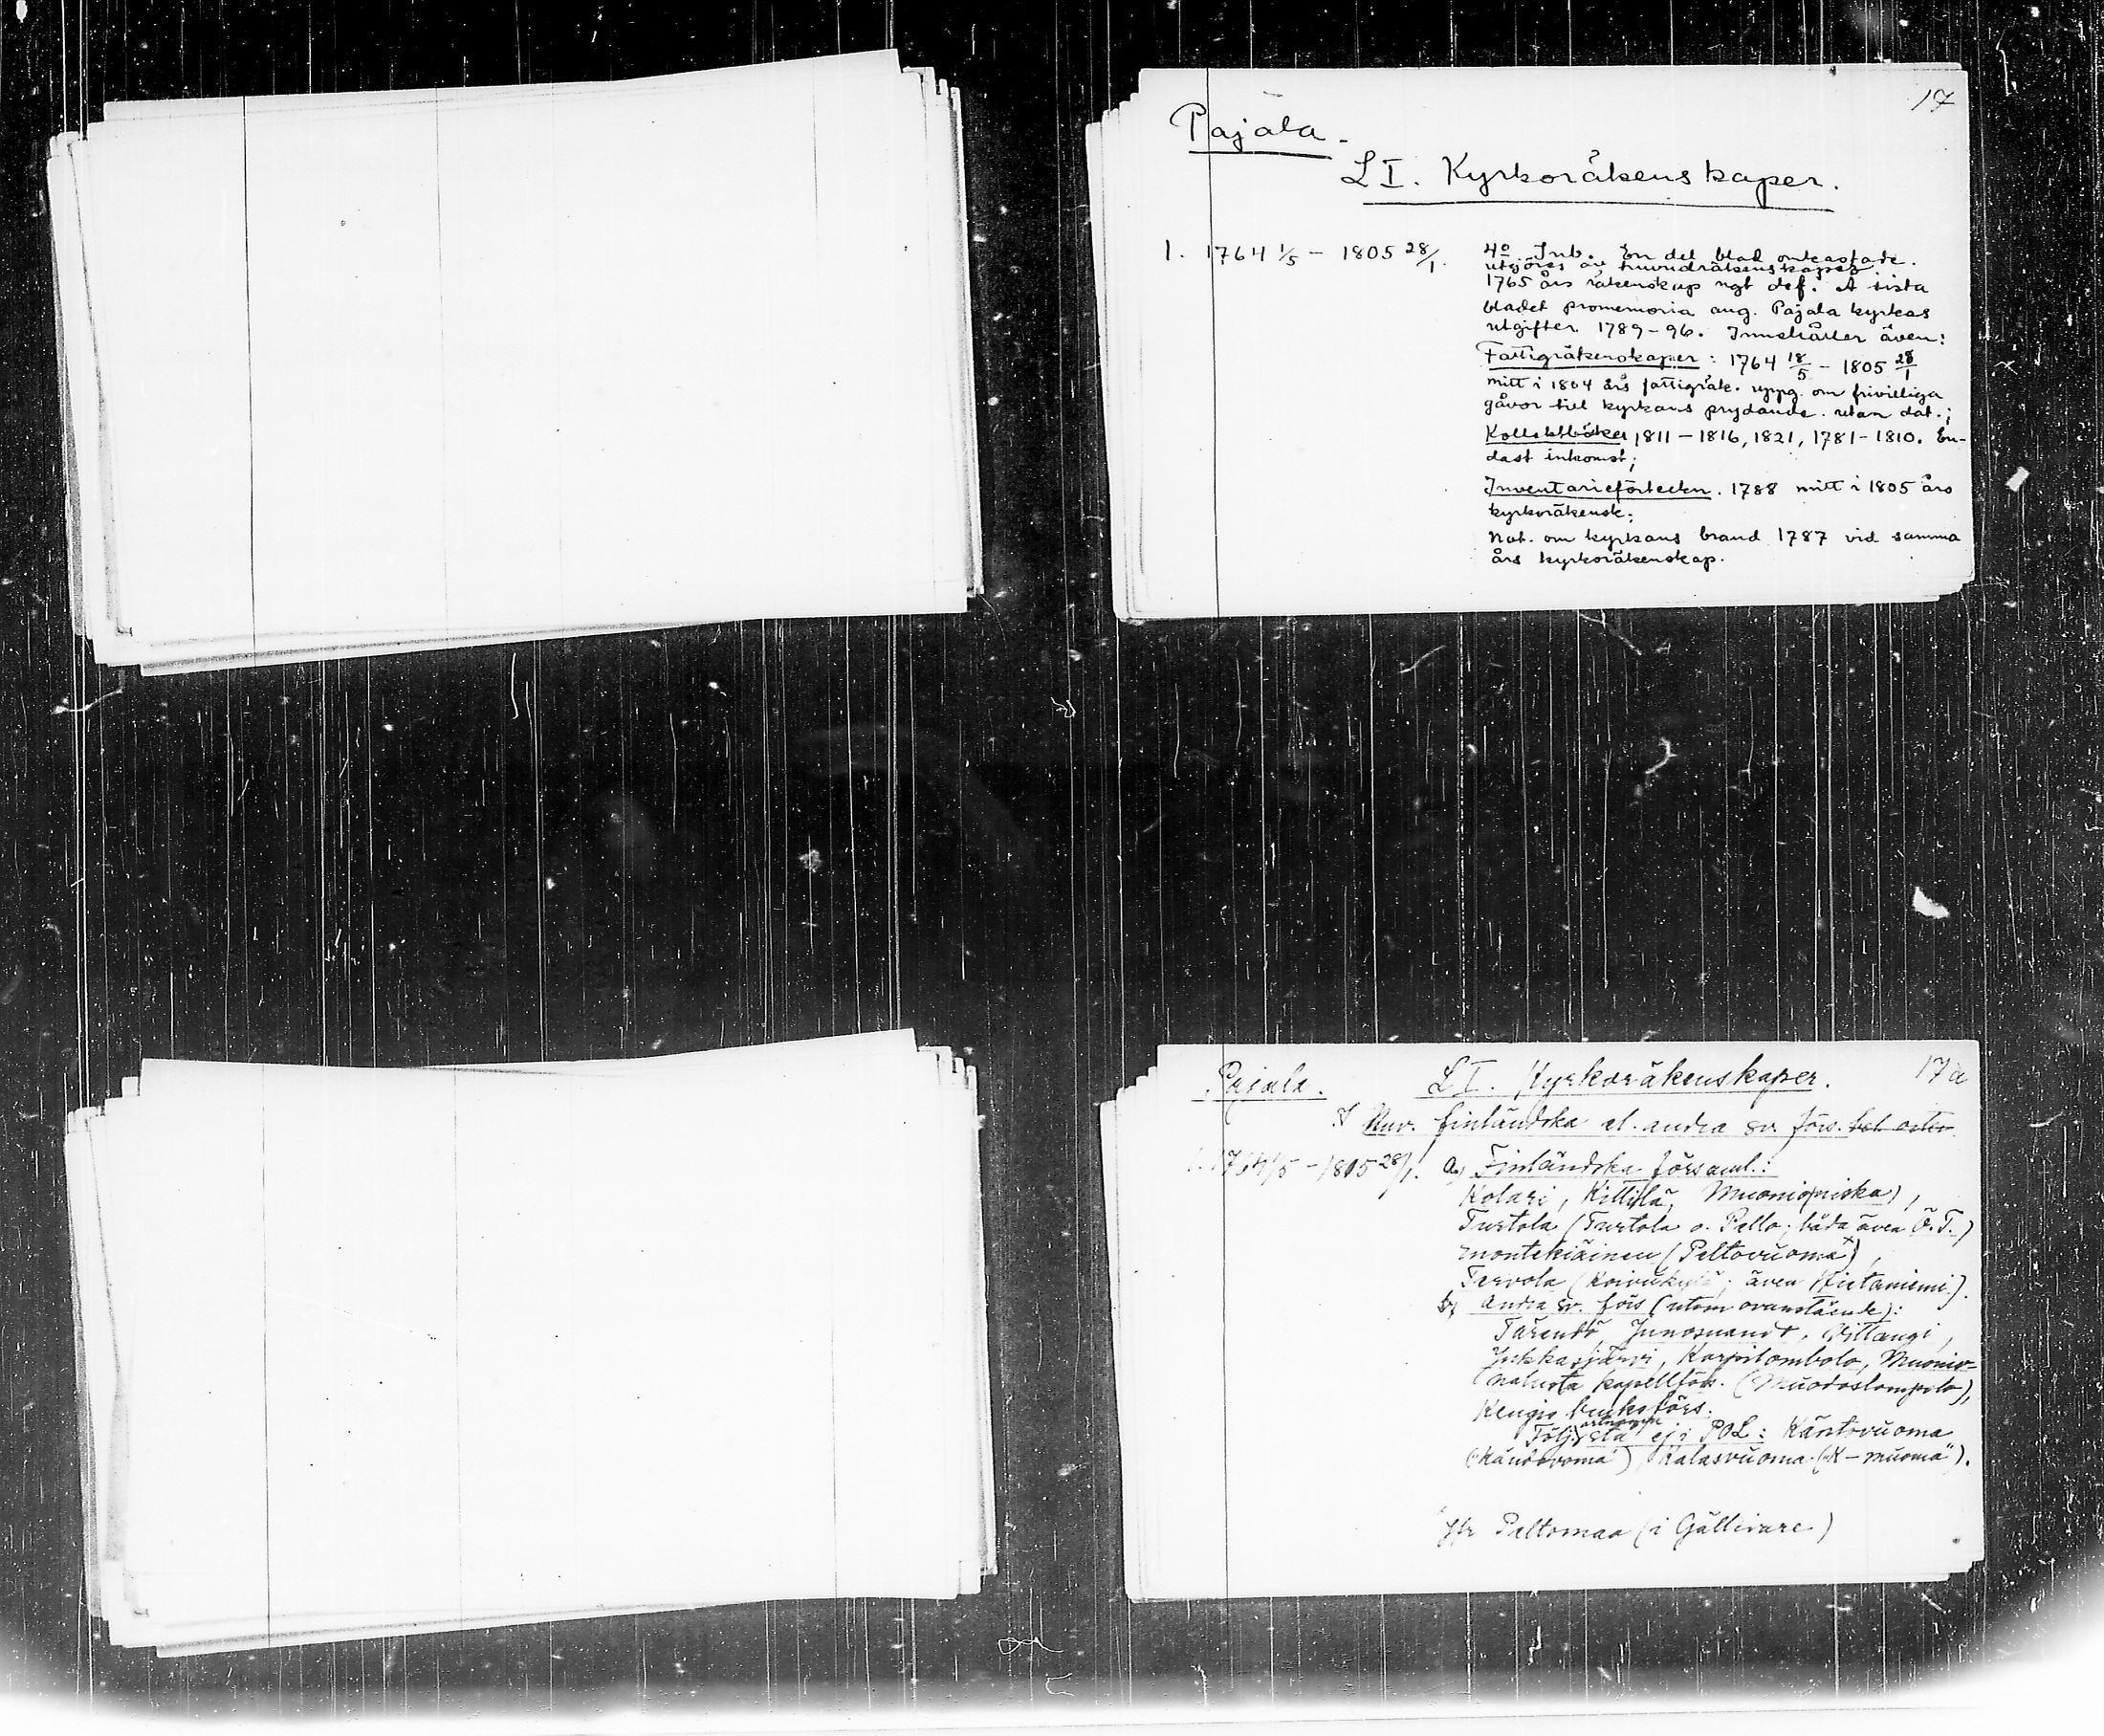 17
Pajala.
L I. Kyrkoräkenskaper.
1. 1764 1/5 – 1805 28/1.
4:o Inb. En del blad omkastade.
utgöres av huvudräkenskaper.
1765 års räkenskap ngt def. Å sista
bladet promemoria ang. Pajala kyrkas
utgifter 1789–96. Innehåller även:
Fattigräkenskaper: 1764 18/5 – 1805 28/1
mitt i 1804 års fattigräk. uppg. om frivilliga
gåvor till kyrkans prydande. utan dat.;
Kollektböcker 1811–1816, 1821, 1781–1810. En-
dast inkomst;
Inventarieförteckn. 1788 mitt i 1805 års
kyrkoräkensk.;
Not. om kyrkans brand 1787 vid samma
års kyrkoräkenskap.
Pajala. L I. Kyrkoräkenskaper. 17a
Nuv. finländska el. andra sv. förs.
1. 1764 1/5 – 1805 28/1. a) Finländska församl.:
Kolari, Kittilä, Muonio(niska),
Turtola (Turtola o. Pello; båda även Ö.T.)
Enontekiäinen (Peltovuoma x),
Tervola (Koivukylä; även Hietaniemi).
b) Andra sv. förs (utom ovanstående):
Tärendö, Junosuando, Vittangi,
Jukkasjärvi, Korpilombolo, Muonio-
nalusta kapellförs. (Muodoslompolo),
Kengis bruksförs.
Följ. ortnamn ej i POL: Käntovuoma
("Käntovoma") Kalasvuoma ("K–muoma").
Jfr Peltomaa (i Gällivare)